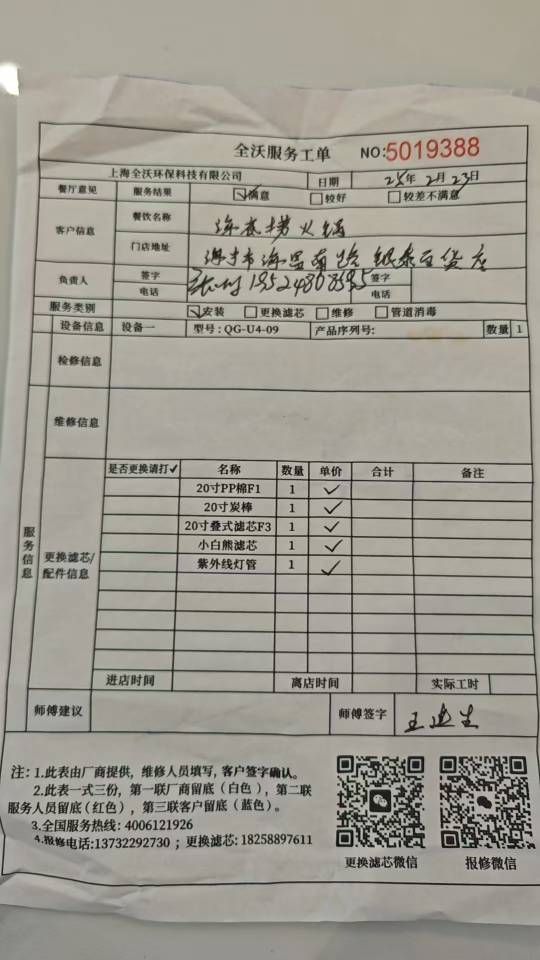 全沃服务工单 NO:5019388
上海全沃环保科技有限公司 日期 25年2月23日
餐厅意见 服务结果 ☑满意 □较好 □较差不满意
客户信息 餐饮名称 海底捞火锅
门店地址 海宁市海昌南路银泰百货店
负责人 签字 签字
电话 电话
服务类别 ☑安装 □更换滤芯 □维修 □管道消毒
设备信息 设备一 型号:QG-U4-09 产品序列号: 数量 1
检修信息
维修信息
服务信息
更换滤芯/配件信息
是否更换请打✓ 名称 数量 单价 合计 备注
20寸PP棉F1 1 ✓
20寸炭棒 1 ✓
20寸叠式滤芯F3 1 ✓
小白熊滤芯 1 ✓
紫外线灯管 1 ✓
进店时间 离店时间 实际工时
师傅建议 师傅签字 王建生
注:1.此表由厂商提供,维修人员填写,客户签字确认。
2.此表一式三份,第一联厂商留底(白色),第二联
服务人员留底(红色),第三联客户留底(蓝色)。
3.全国服务热线:4006121926
4.报修电话:13732292730;更换滤芯:18258897611
更换滤芯微信 报修微信